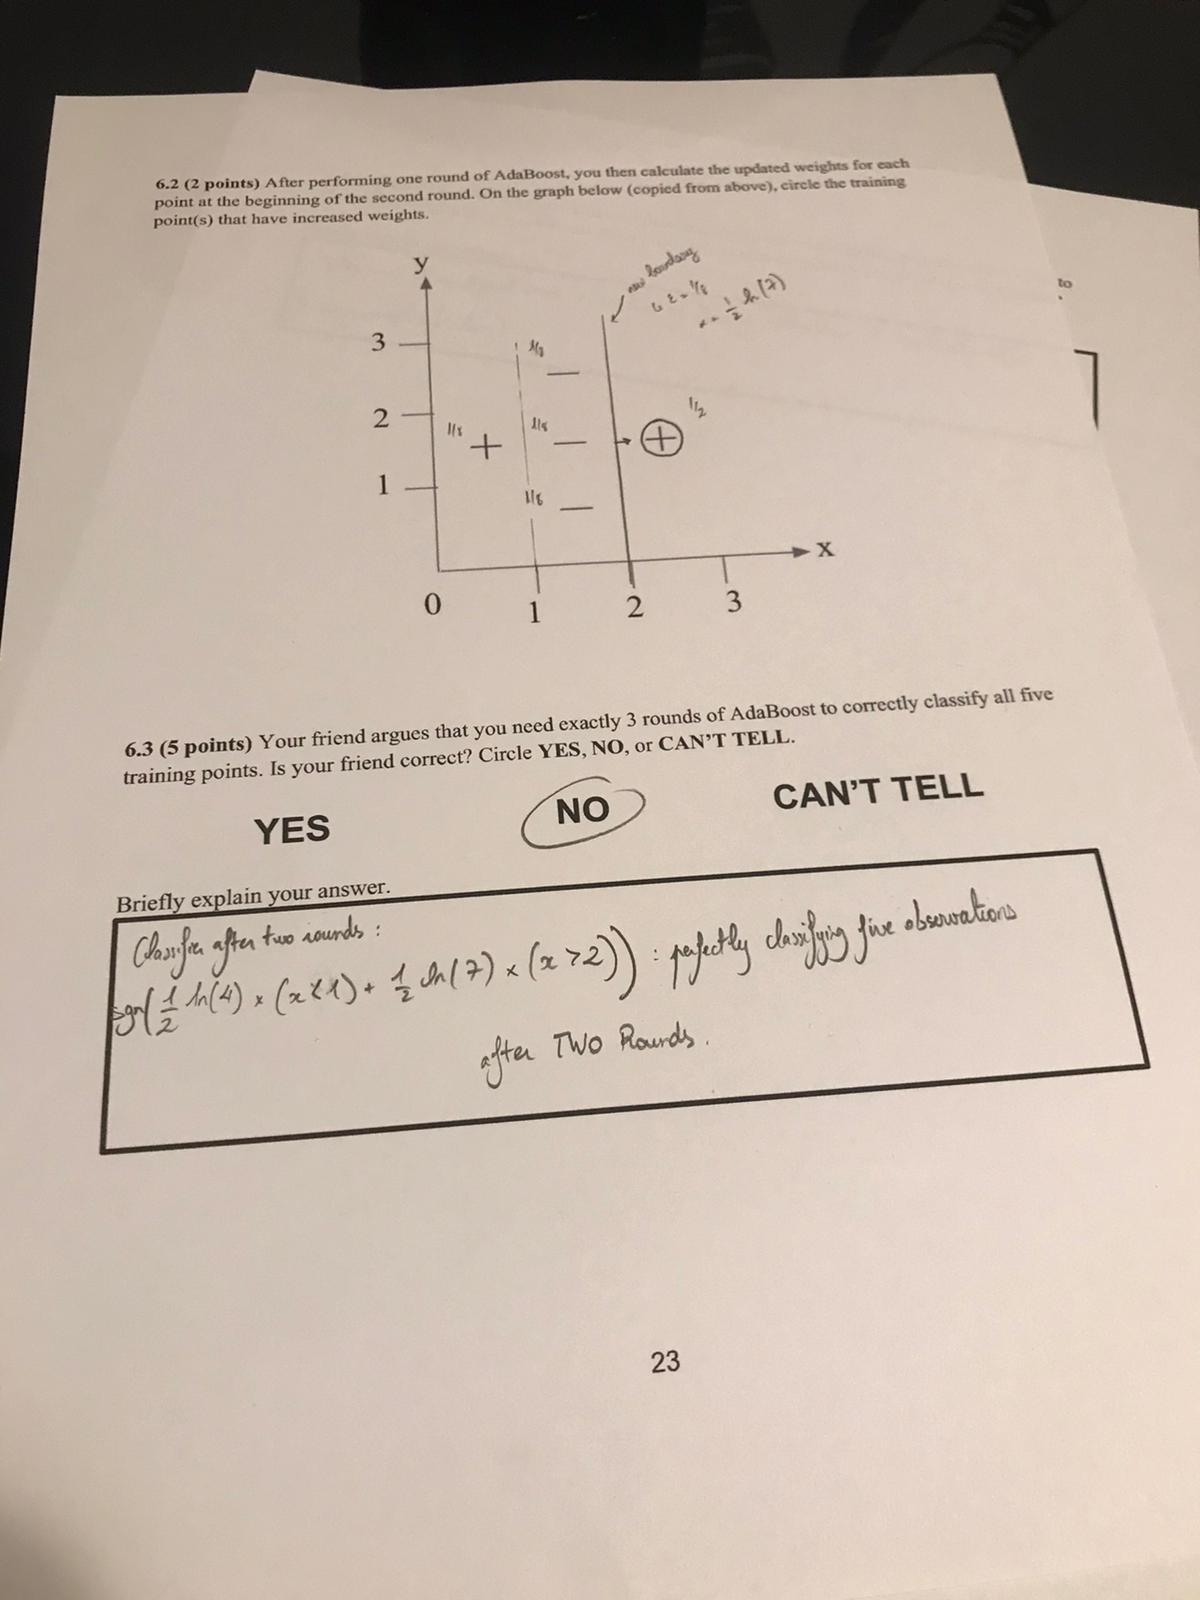 6.2 (2 points) After performing one round of AdaBoost, you then calculate the updated weights for each
point at the beginning of the second round. On the graph below (copied from above), circle the training
point(s) that have increased weights.
to
y
new boundary
↳ ε = 1/8
α = 1/2 ln(7)
3
1/8
2
1/8
+
1/8
+
1/2
1
1/8
x
0
1
2
3
6.3 (5 points) Your friend argues that you need exactly 3 rounds of AdaBoost to correctly classify all five
training points. Is your friend correct? Circle YES, NO, or CAN'T TELL.
YES
NO
CAN'T TELL
Briefly explain your answer.
Classifier after two rounds :
sgn(1/2 ln(4) × (x<1) + 1/2 ln(7) × (x>2)) : perfectly classifying five observations
after TWO Rounds.
23